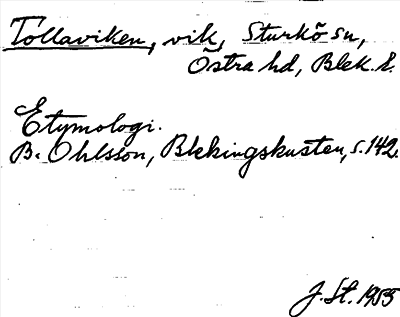 Tollaviken, vik, Sturkö sn,
Östra hd, Blek. l.
Etymologi.
B. Ohlsson, Blekingskusten, s. 142.
J. St. 1955